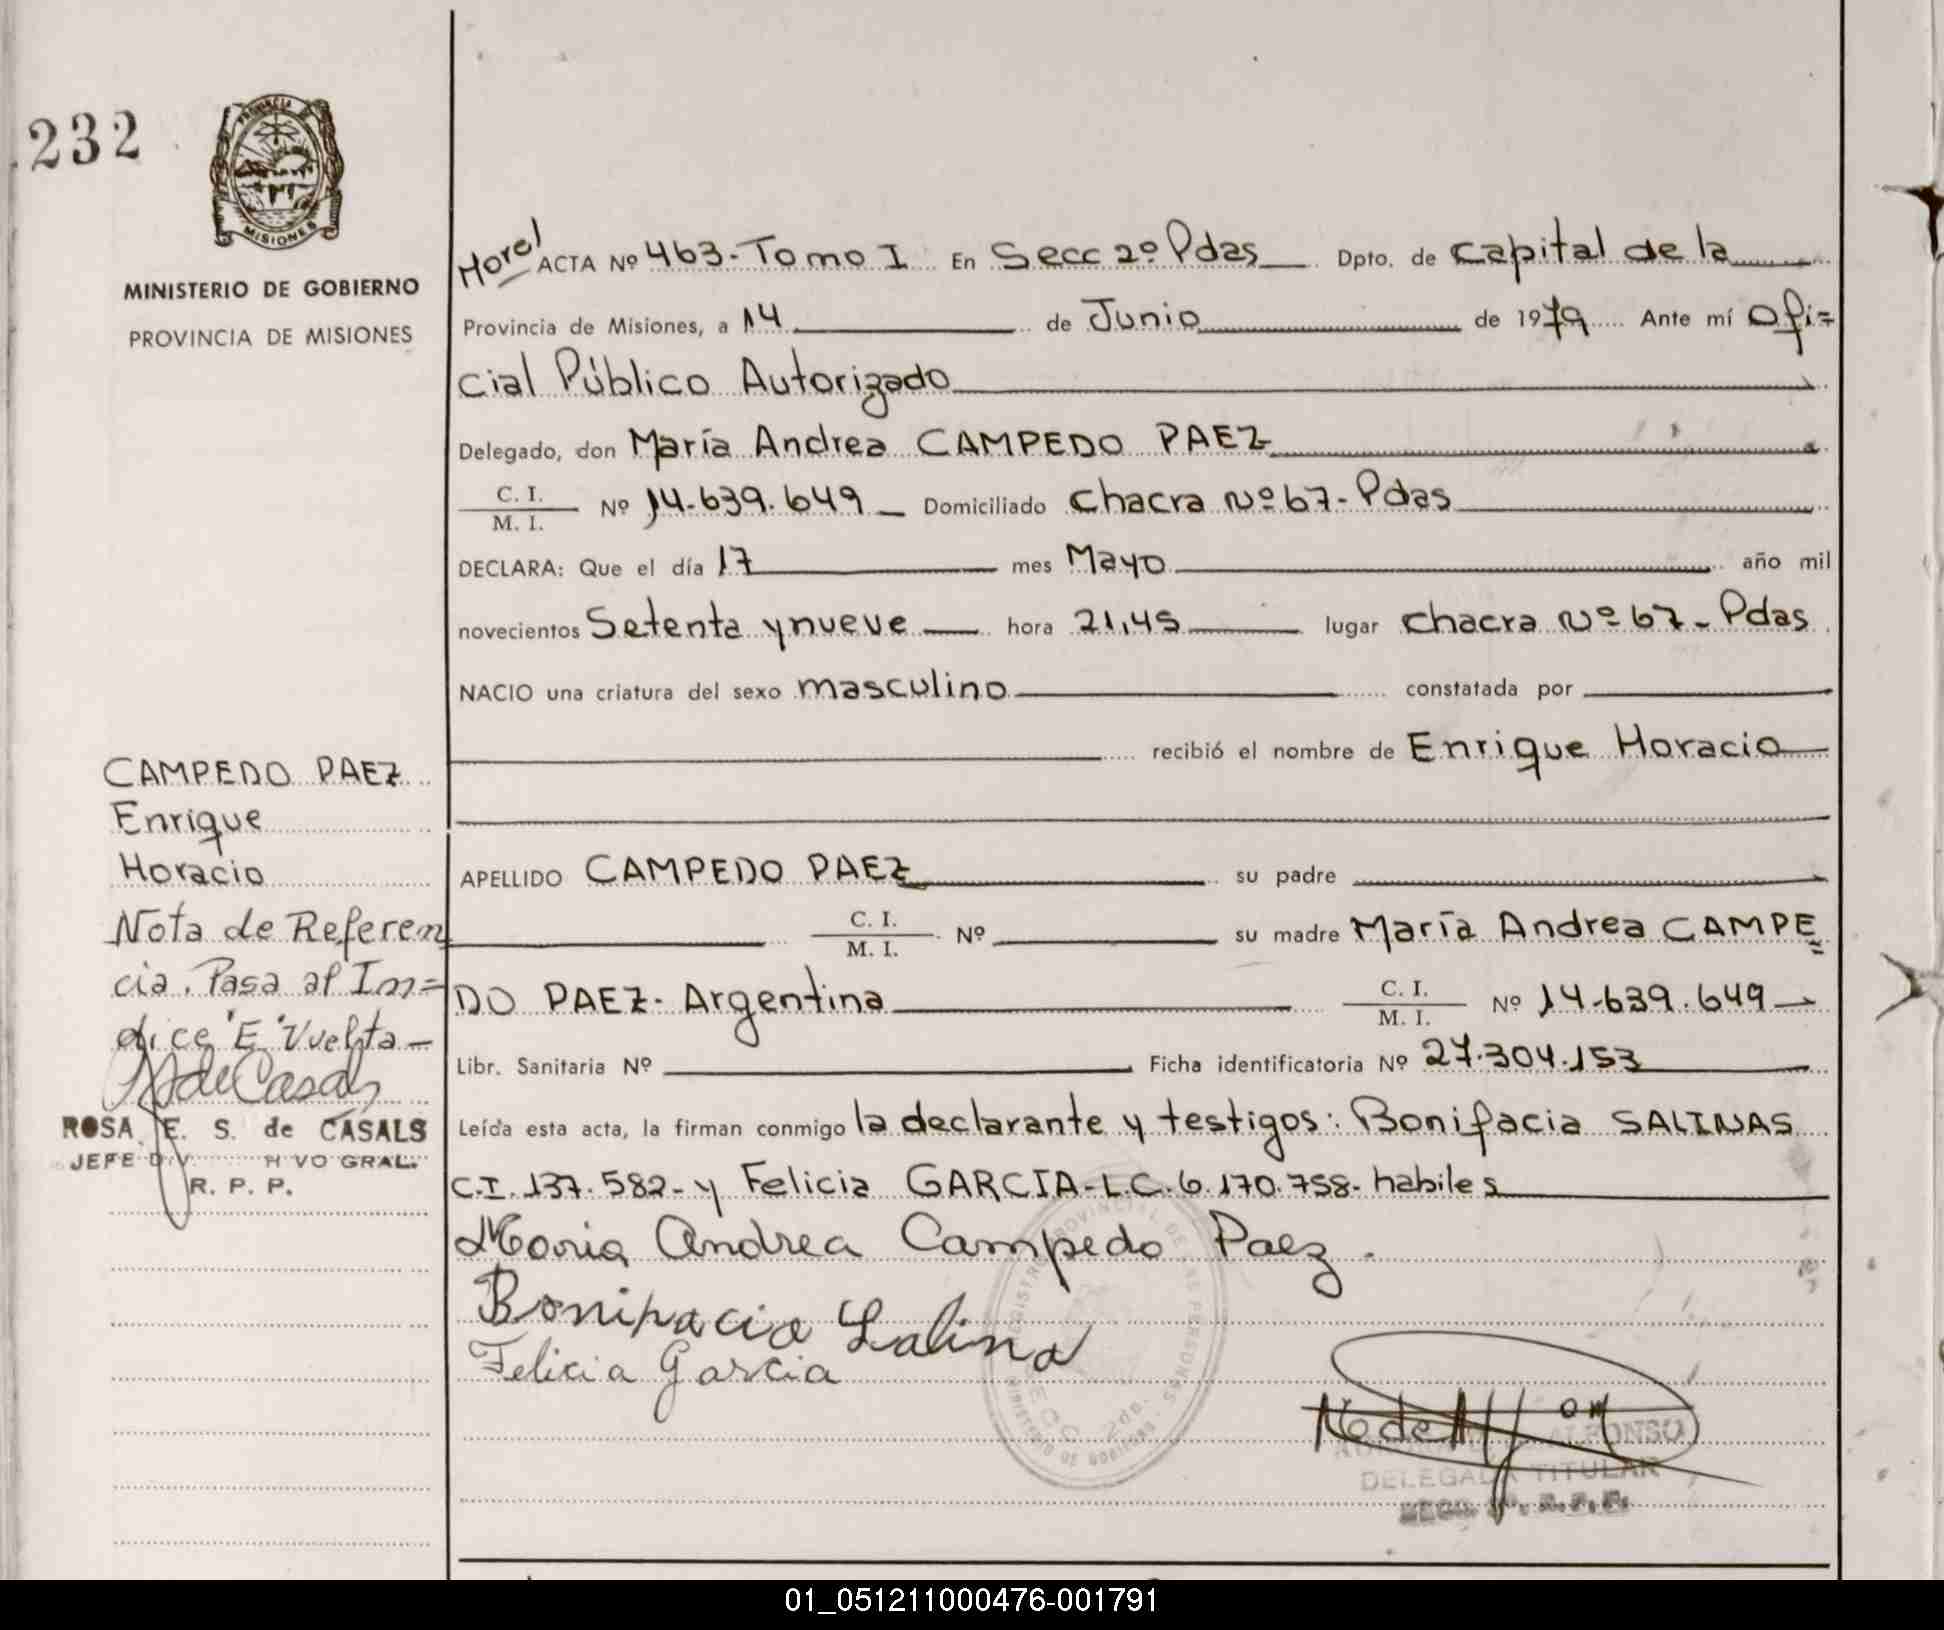 232
PROVINCIA DE
MISIONES
MINISTERIO DE GOBIERNO
PROVINCIA DE MISIONES
ACTA Nº 463-Tomo I En Secc 2º Pdas Dpto. de Capital de la
Provincia de Misiones, a 14 de Junio de 1979 Ante mí Ofi=
cial Público Autorizado
Delegado, don María Andrea CAMPEDO PAEZ
C. I.
M. I. Nº 14.639.649 Domiciliado Chacra Nº 67-Pdas
DECLARA: Que el día 17 mes Mayo año mil
novecientos Setenta y nueve hora 21,45 lugar Chacra Nº 67-Pdas
NACIO una criatura del sexo masculino constatada por
recibió el nombre de Enrique Horacio
APELLIDO CAMPEDO PAEZ su padre
C. I.
M. I. Nº su madre María Andrea CAMPE=
DO PAEZ- Argentina C. I.
M. I. Nº 14.639.649
Libr. Sanitaria Nº Ficha identificatoria Nº 27.304.153
Leída esta acta, la firman conmigo la declarante y testigos: Bonifacia SALINAS
C.I. 137.582- y Felicia GARCIA-L.C. 6.170.758- habiles
Maria Andrea Campedo Paez.
Bonifacia Salina
Felicia Garcia
CAMPEDO PAEZ
Enrique
Horacio
Nota de Referen
cia. Pasa al Im=
dice "E" Vuelta-
ROSA E. S. de CASALS
JEFE DIV. VO GRAL.
R. P. P.
REGISTRO PROVINCIAL DE LAS PERSONAS
MINISTERIO DE GOBIERNO
SECC 2da.
ALFONSO
DELEGADA TITULAR
01_051211000476-001791